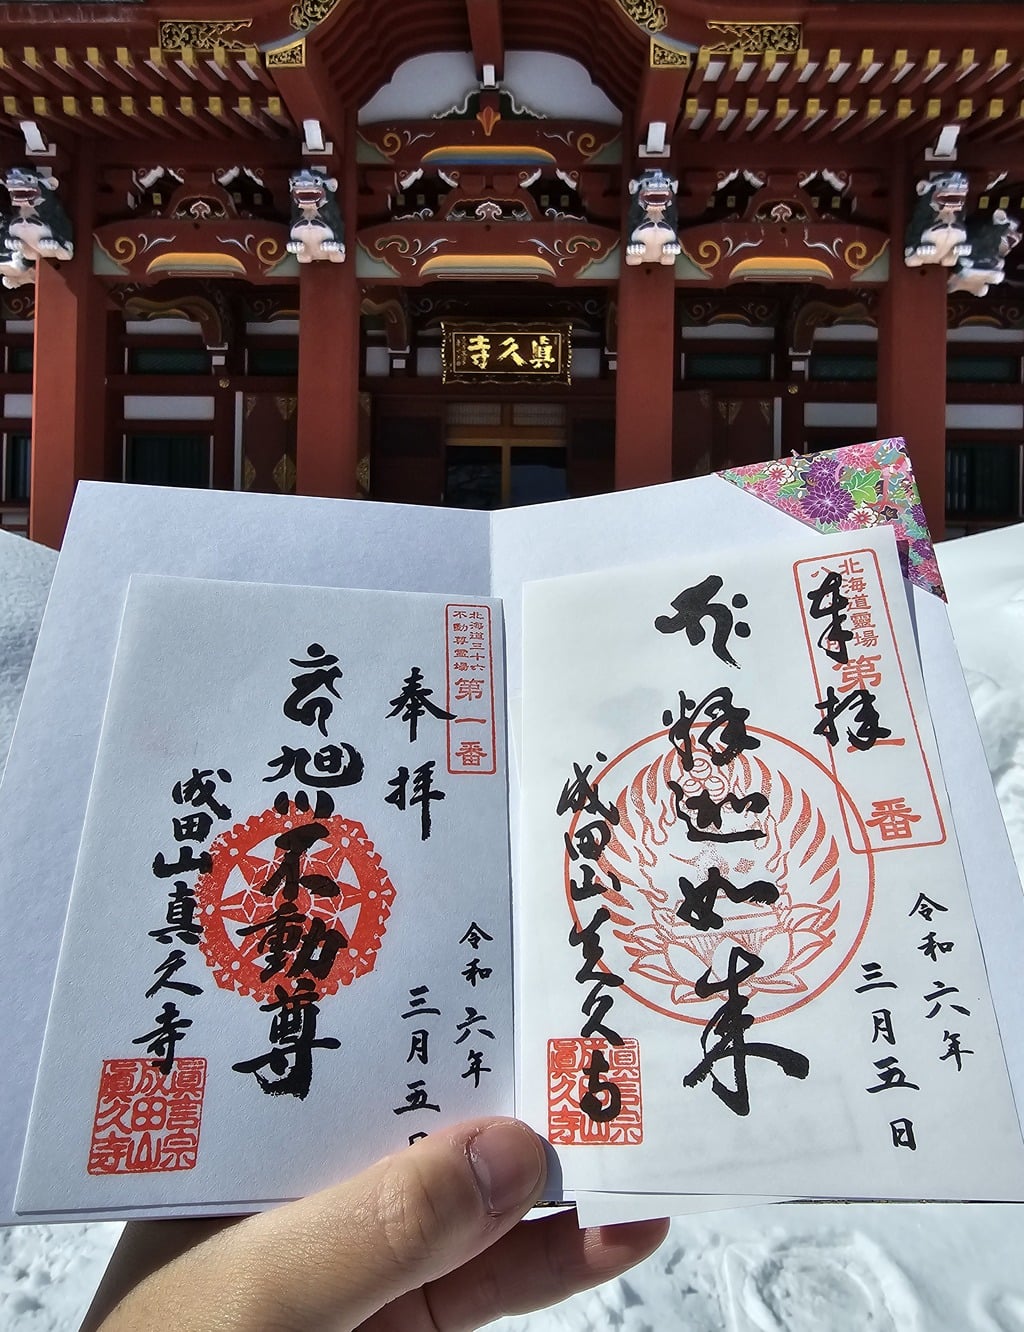 眞久寺
北海道三十六
不動尊霊場
第一番
奉拝
令和六年
三月五日
旭川不動尊
成田山真久寺
眞言宗
成田山
眞久寺
北海道靈場
第一番
奉拝
令和六年
三月五日
釈迦如来
成田山真久寺
眞言宗
成田山
眞久寺